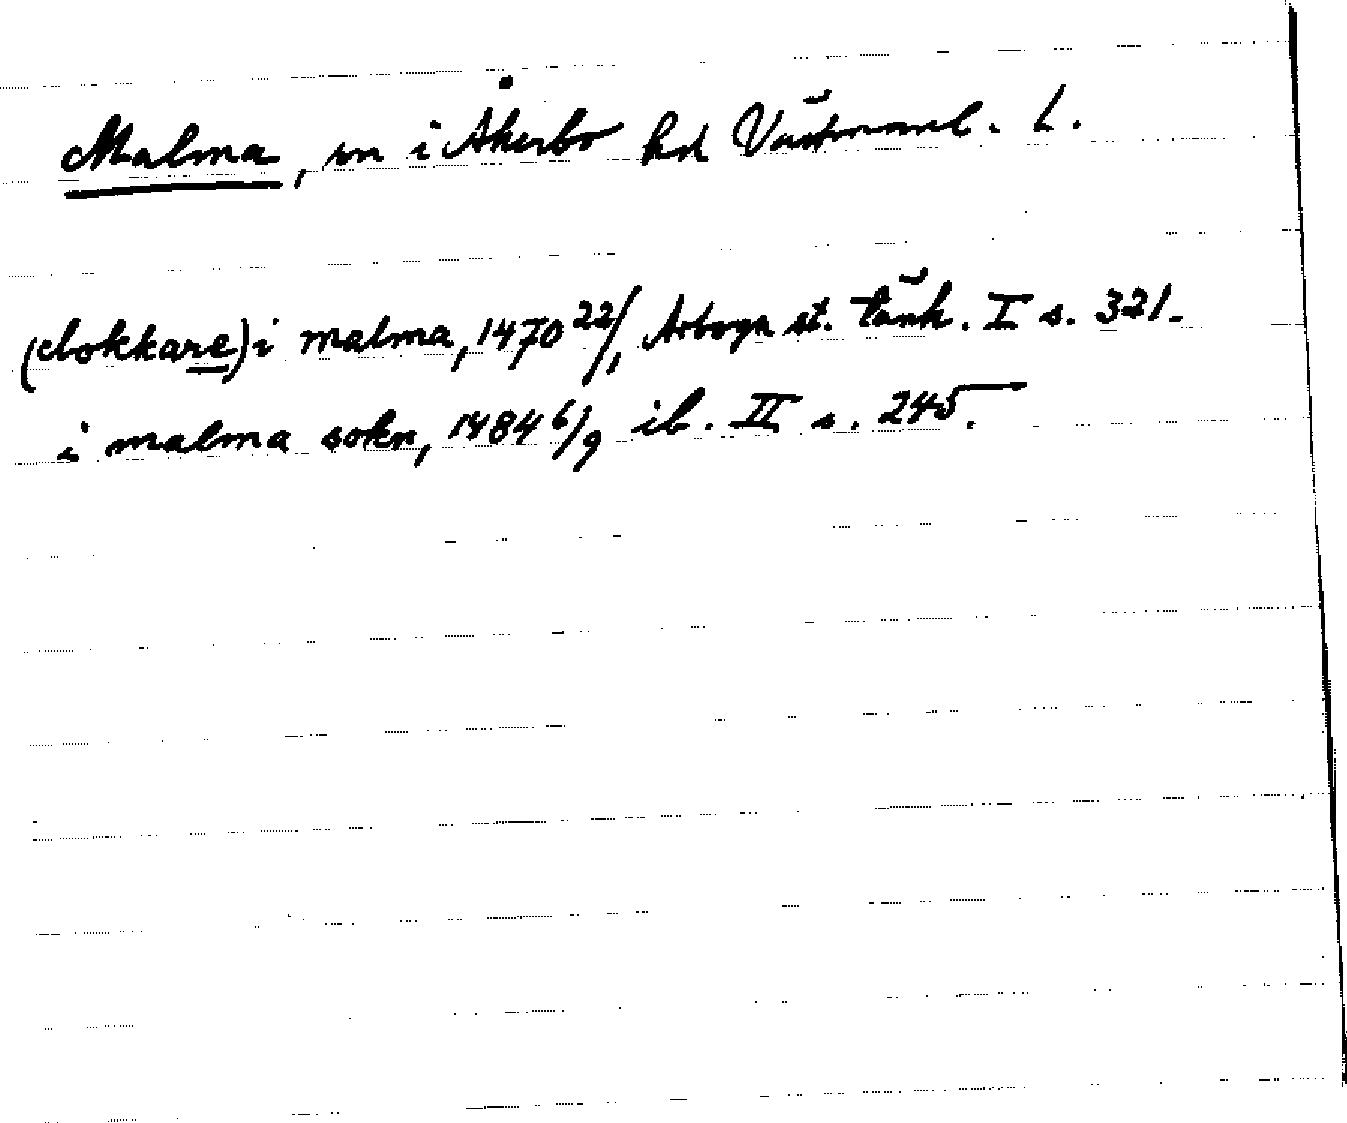 Malma, sn i Åkerbo hd Västmanl. L.
(clokkare) i malma, 1470 22/1, Arboga st. tänk. I s. 321.
i malma sokn, 1484 6/9 ib. II s. 245.